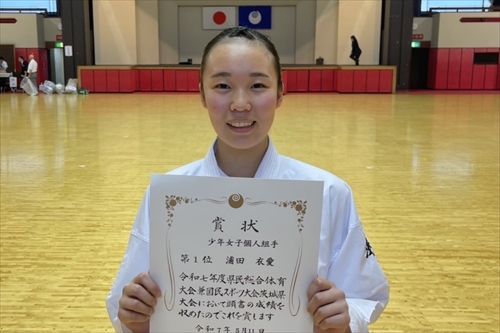 賞状
少年女子個人組手
第1位 浦田 衣愛
令和七年度県民総合体育
大会兼国民スポーツ大会茨城県
大会において頭書の成績を
収めたのでこれを賞します
令和7年5月11日